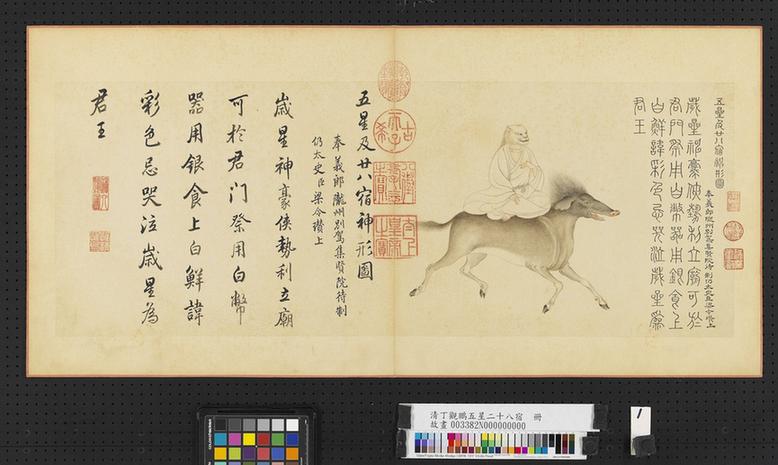 五星及廿八宿神形圖
奉義郎隴州別駕集賢院待制仍太史臣梁令瓚上
歲星神豪俠勢利立廟可於
君門祭用白幣器用銀食上
白鮮諱彩色忌哭泣歲星為
君王
五星及廿八宿神形圖
奉義郎隴州別駕集賢院待制
仍太史臣梁令瓚上
歲星神豪俠勢利立廟
可於君门祭用白幣
器用銀食上白鮮諱
彩色忌哭泣歲星為
君王
古希天子
八徵耄念之寶
太上皇帝之寶
清丁觀鵬五星二十八宿 冊
故畫 003382N000000000
1